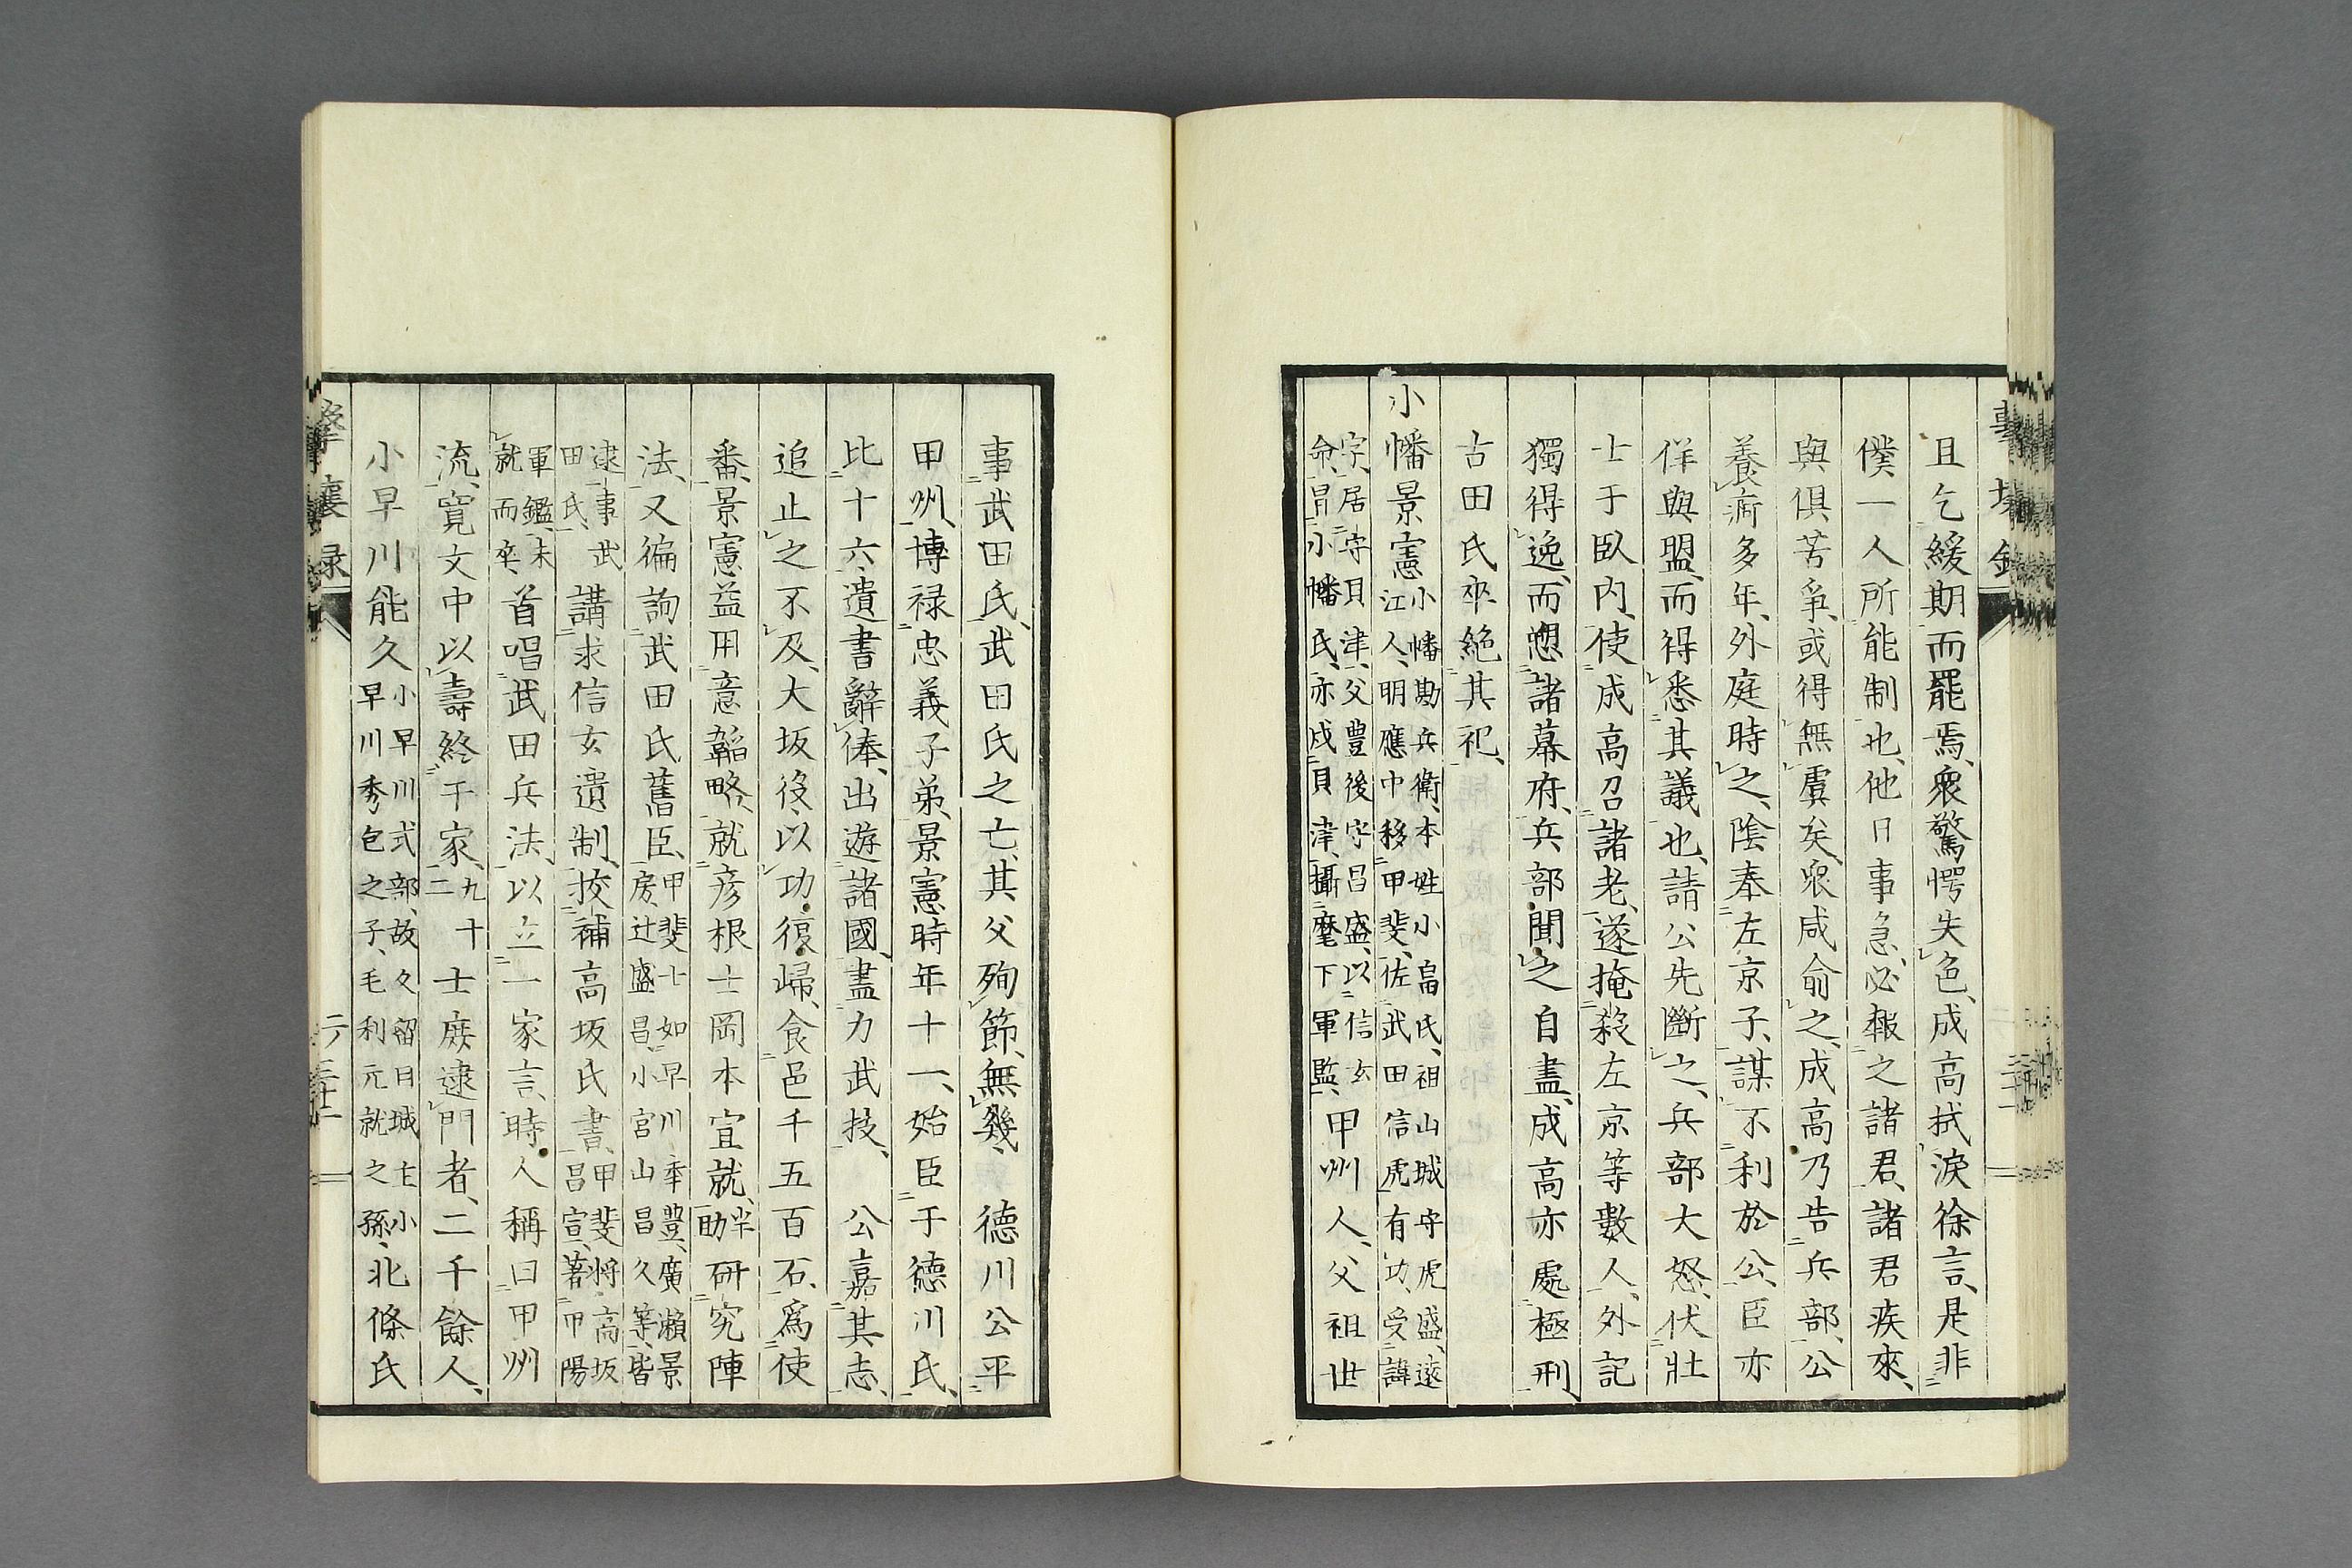 且乞緩期而罷焉、衆驚愕失色、成高拭淚徐言、是非
僕一人所能制也、他日事急、必報之諸君、諸君疾來、
與俱苦爭、或得無虞矣、衆咸俞之、成高乃告兵部、公
養痾多年、外庭時之、陰奉左京子、謀不利於公、臣亦
佯與盟、而得悉其議也、請公先斷之、兵部大怒、伏壯
士于臥内、使成高召諸老、遂掩殺左京等數人、外記
獨得逸、而愬諸幕府、兵部聞之自盡、成高亦處極刑、
古田氏卒絕其祀、
小幡景憲小幡勘兵衛、本姓小畠氏、祖山城守虎盛、遠
江人、明應中移甲斐、佐武田信虎有功、受諱
字、居守貝津、父豊後守昌盛、以信玄
命、冒小幡氏、亦戍貝津、攝麾下軍監、甲州人、父祖世
事武田氏、武田氏之亡、其父殉節、無幾、德川公平
甲州、博禄忠義子弟、景憲時年十一、始臣于德川氏、
比十六、遺書辭俸、出遊諸國、盡力武技、公嘉其志、
追止之不及、大坂役、以功復歸、食邑千五百石、爲使
番、景憲益用意韜略、就彦根士岡本宣就、半助研究陣
法、又徧詢武田氏舊臣、甲斐士如早川幸豊、廣瀬景
房、辻盛昌、小宮山昌久等、皆
逮事武
田氏、講求信玄遺制、挍補高坂氏書、甲斐将高坂
昌宣、著甲陽
軍鑑、未
就而卒、首唱武田兵法、以立一家言、時人稱曰甲州
流、寛文中以壽終于家、九十
二士庶逮門者、二千餘人、
小早川能久小早川式部、故久留目城主小
早川秀包之子、毛利元就之孫、北條氏